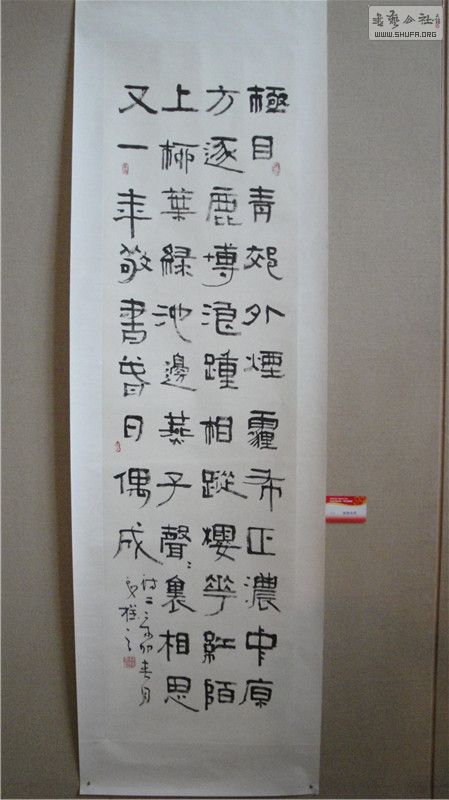 書藝公社
WWW.SHUFA.ORG
極目青郊外煙霾布正濃中原
方逐鹿博浪踵相蹤櫻花紅陌
上柳葉綠池邊燕子聲々裏相思
又一年敬書春日偶成
春月